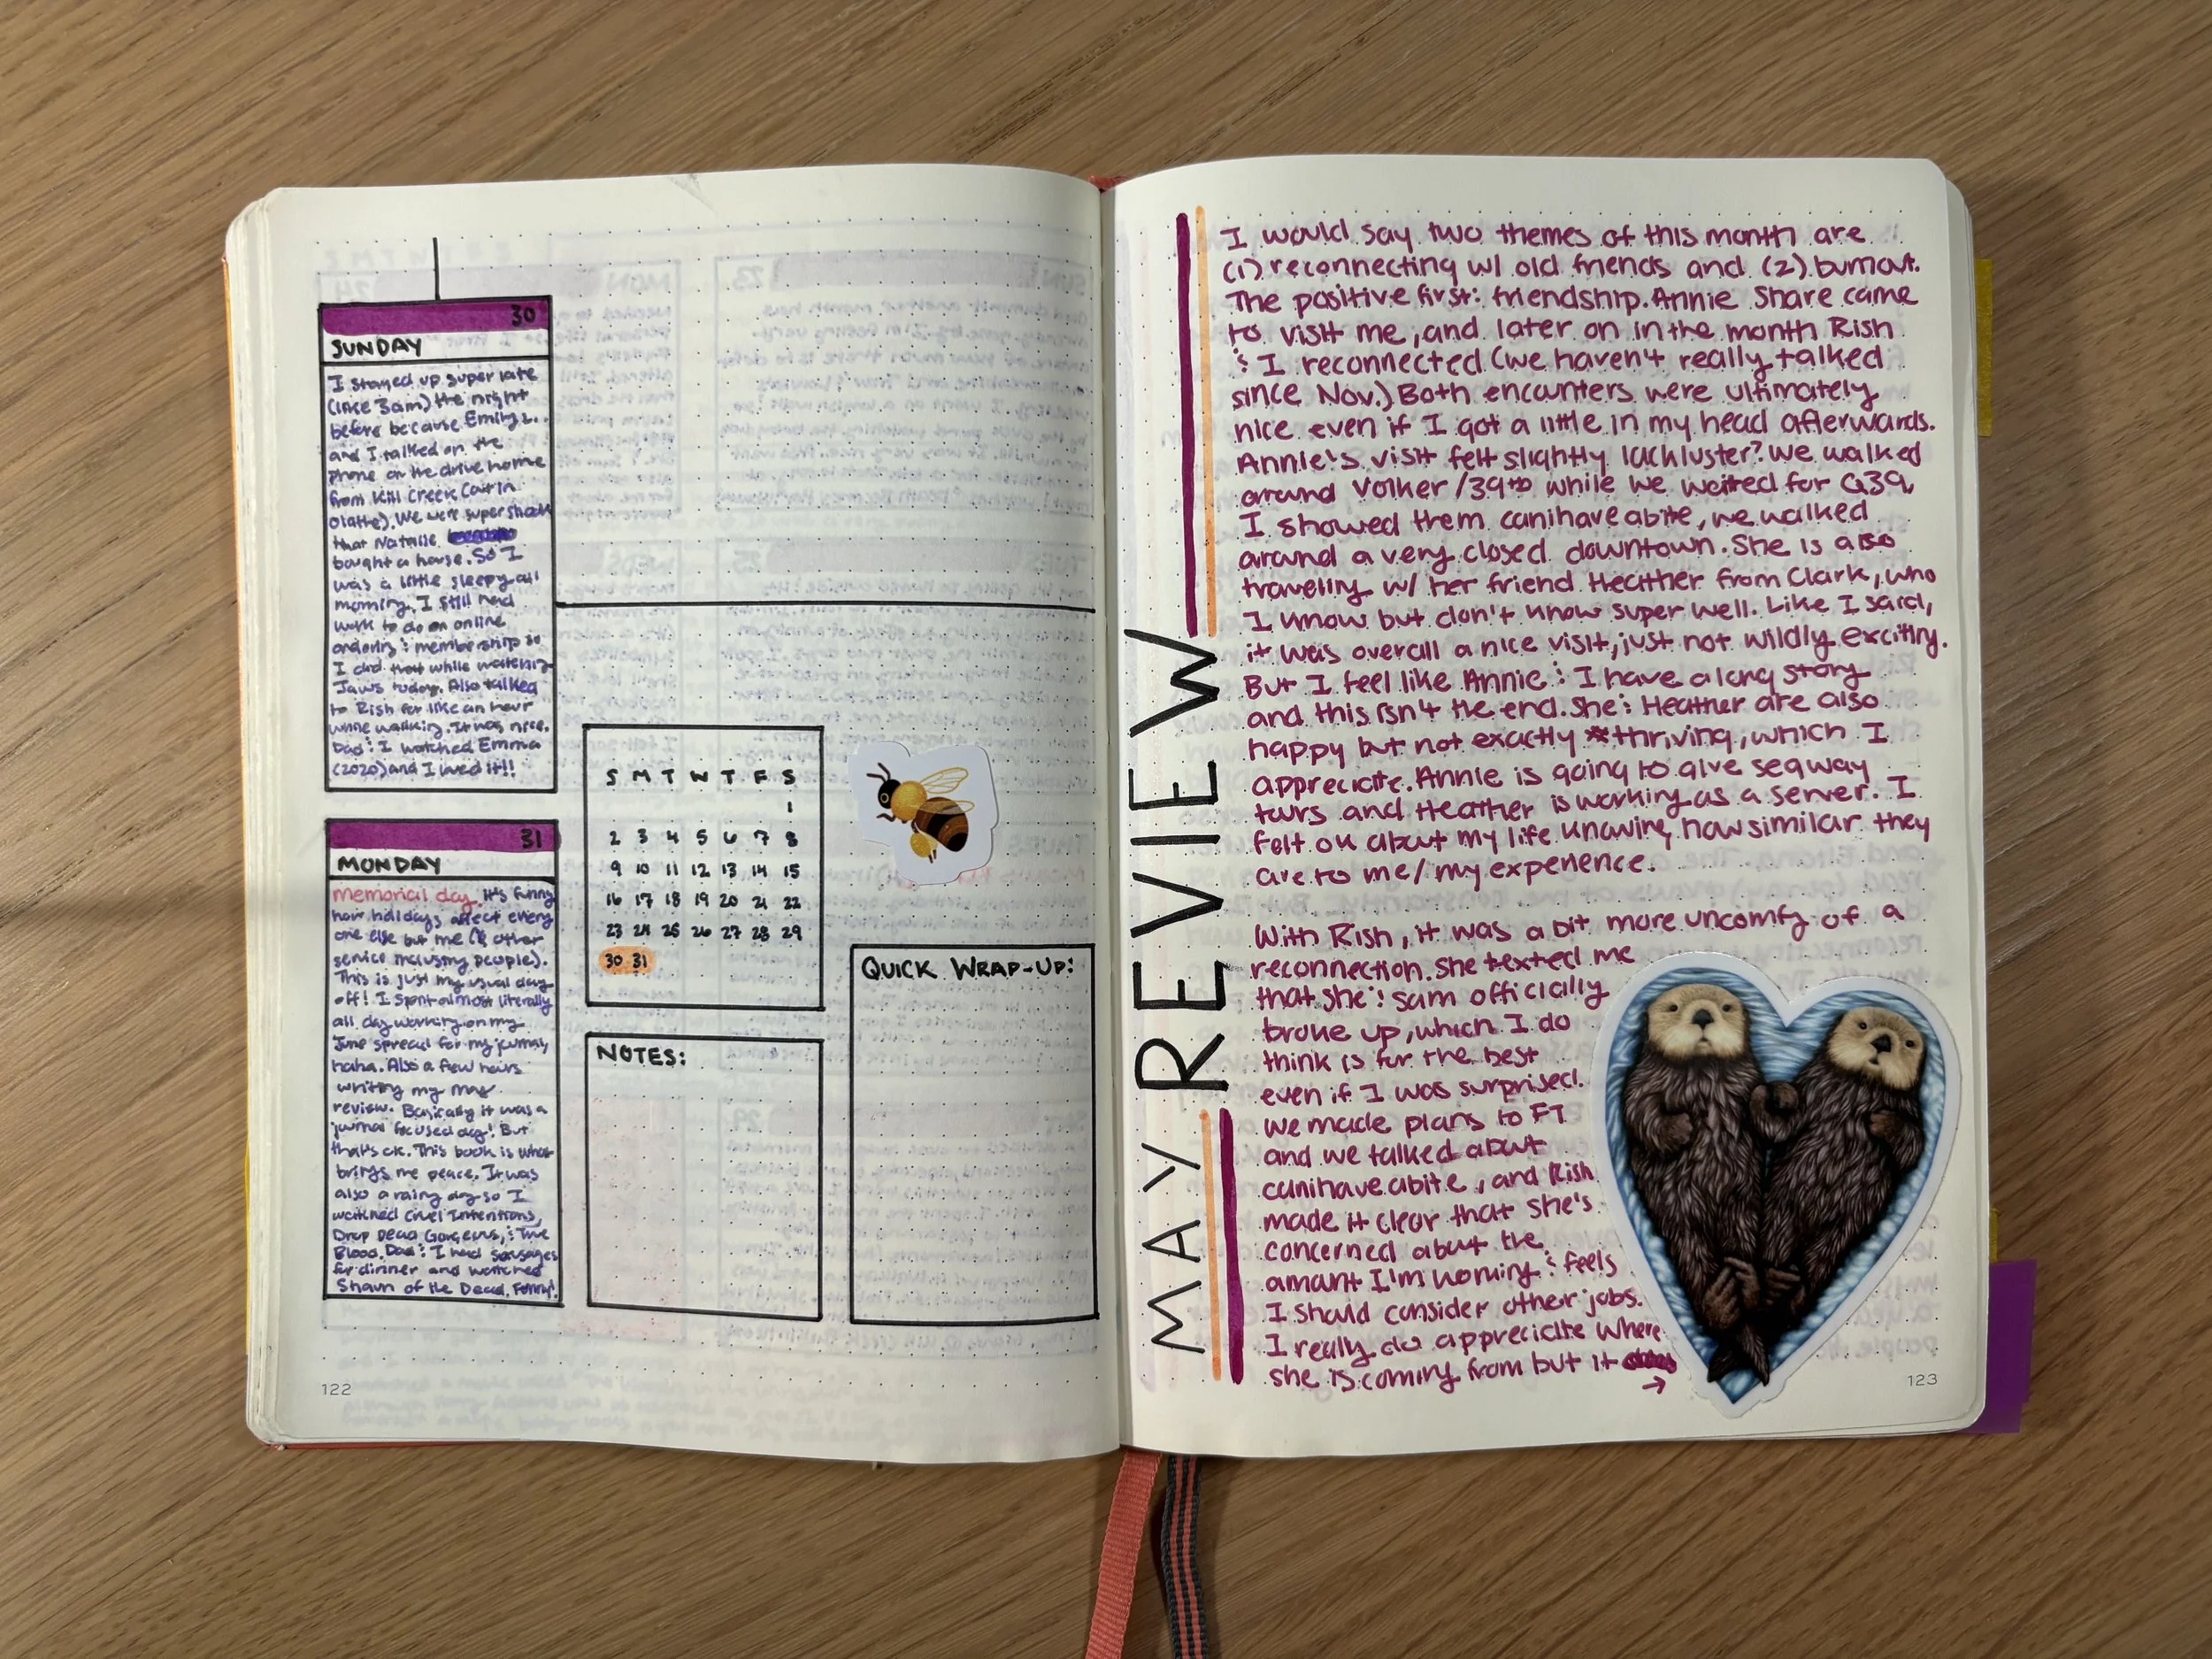 30
SUNDAY
I stayed up super late
(like 3am) the night
before because Emily L.
and I talked on the
phone on the drive home
from Kill Creek (out in
Olathe). We were super shook
that Natalie
bought a house. So I
was a little sleepy all
morning. I still had
work to do on online
ordering & membership so
I did that while watching
Jaws today. Also talked
to Rish for like an hour
while walking. It was nice.
Dad & I watched Emma
(2020) and I loved it!!
31
MONDAY
Memorial day. It's funny
how holidays affect every
one else but me (& other
service industry people).
This is just my usual day
off! I spent almost literally
all day working on my
June spread for my journal,
haha. Also a few hours
writing my May
review. Basically it was a
journal focused day! But
that's ok. This book is what
brings me peace. It was
also a rainy day so I
watched Cruel Intentions,
Drop Dead Gorgeous, & True
Blood. Dad & I had sausages
for dinner and watched
Shaun of the Dead. Funny!
S M T W T F S
1
2 3 4 5 6 7 8
9 10 11 12 13 14 15
16 17 18 19 20 21 22
23 24 25 26 27 28 29
30 31
NOTES:
QUICK WRAP-UP:
122
MAY REVIEW
I would say two themes of this month are
(1) reconnecting w/ old friends and (2) burnout.
The positive first: friendship. Annie Share came
to visit me, and later on in the month Rish
& I reconnected (we haven't really talked
since Nov.) Both encounters were ultimately
nice even if I got a little in my head afterwards.
Annie's visit felt slightly lackluster? We walked
around Volker/39th while we waited for Q39,
I showed them canihaveabite, we walked
around a very closed downtown. She is also
traveling w/ her friend Heather from Clark, who
I know but don't know super well. Like I said,
it was overall a nice visit, just not wildly exciting.
But I feel like Annie & I have a long story
and this isn't the end. She & Heather are also
happy but not exactly *thriving, which I
appreciate. Annie is going to give segway
tours and Heather is working as a server. I
felt ok about my life knowing how similar they
are to me/my experience.
With Rish, it was a bit more uncomfy of a
reconnection. She texted me
that she & Sam officially
broke up, which I do
think is for the best
even if I was surprised.
We made plans to FT
and we talked about
canihaveabite, and Rish
made it clear that she's
concerned about the
amount I'm working & feels
I should consider other jobs.
I really do appreciate where
she is coming from but it
→
123